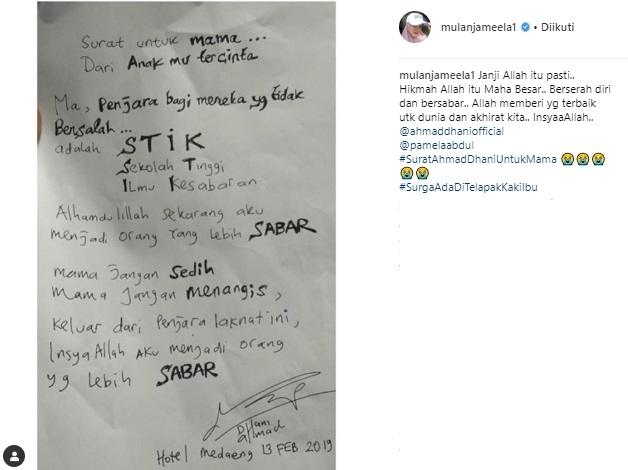 Surat untuk mama ...
Dari Anak mu tercinta
Ma, Penjara bagi mereka yg tidak
Bersalah ...
adalah STIK
Sekolah Tinggi
Ilmu Kesabaran
Alhamdulillah sekarang aku
menjadi orang yang lebih SABAR
mama jangan sedih
mama jangan menangis,
keluar dari penjara laknat ini,
Insya Allah aku menjadi orang
yg lebih SABAR
Dhani
ahmad
Hotel medaeng 13 FEB 2019
mulanjameela1 • Diikuti
mulanjameela1 Janji Allah itu pasti..
Hikmah Allah itu Maha Besar.. Berserah diri
dan bersabar.. Allah memberi yg terbaik
utk dunia dan akhirat kita.. InsyaaAllah..
@ahmaddhaniofficial
@pamelaabdul
#SuratAhmadDhaniUntukMama 😭😭😭
😭😭
#SurgaAdaDiTelapakKakiIbu